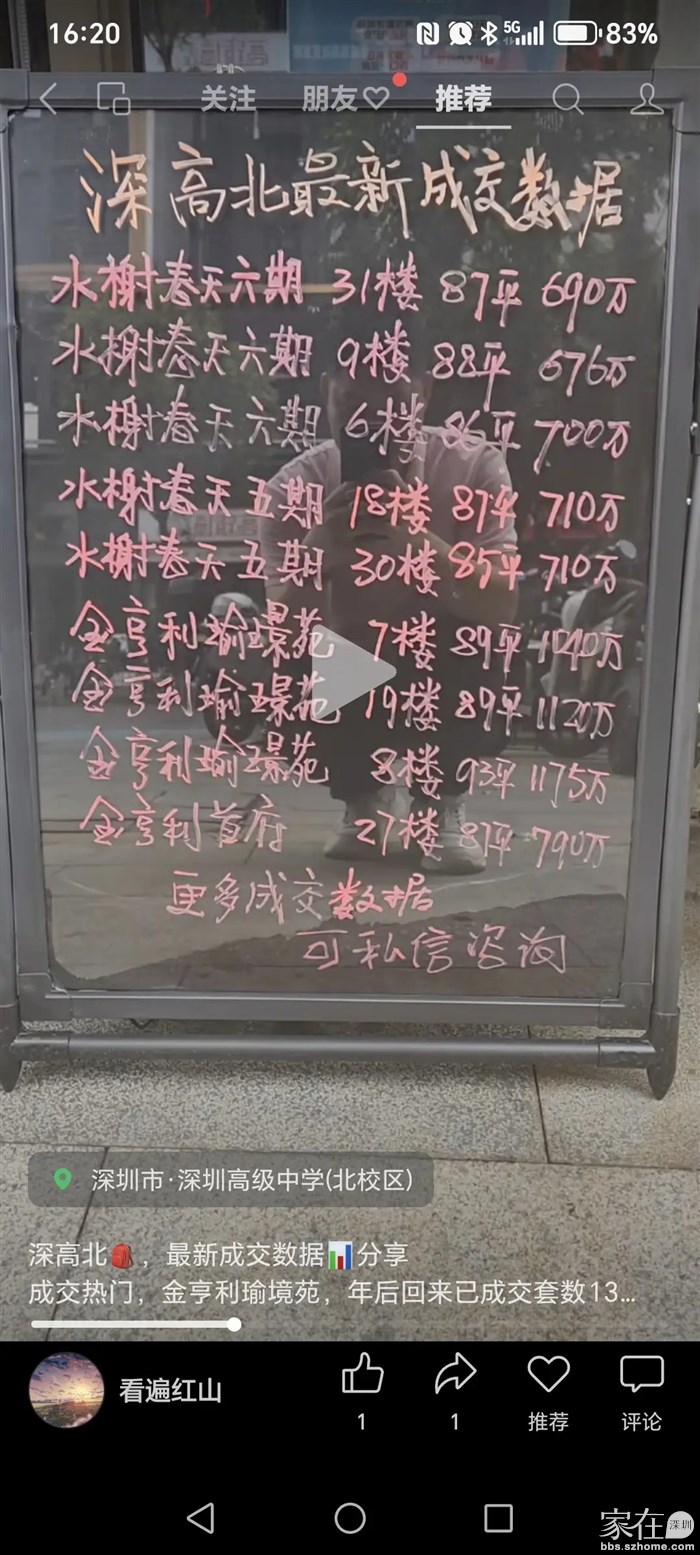 16:20
5G 83%
关注 朋友 推荐
深高北最新成交数据
水榭春天六期 31楼 87平 690万
水榭春天六期 9楼 88平 676万
水榭春天六期 6楼 86平 700万
水榭春天五期 18楼 87平 710万
水榭春天五期 30楼 85平 710万
金亨利瑜璟苑 7楼 89平 1040万
金亨利瑜璟苑 19楼 89平 1120万
金亨利瑜璟苑 8楼 93平 1175万
金亨利首府 27楼 87平 790万
更多成交数据
可私信咨询
深圳市·深圳高级中学(北校区)
深高北🎒，最新成交数据📊分享
成交热门，金亨利瑜境苑，年后回来已成交套数13...
看遍红山
1 1 推荐 评论
家在深圳
bbs.szhome.com